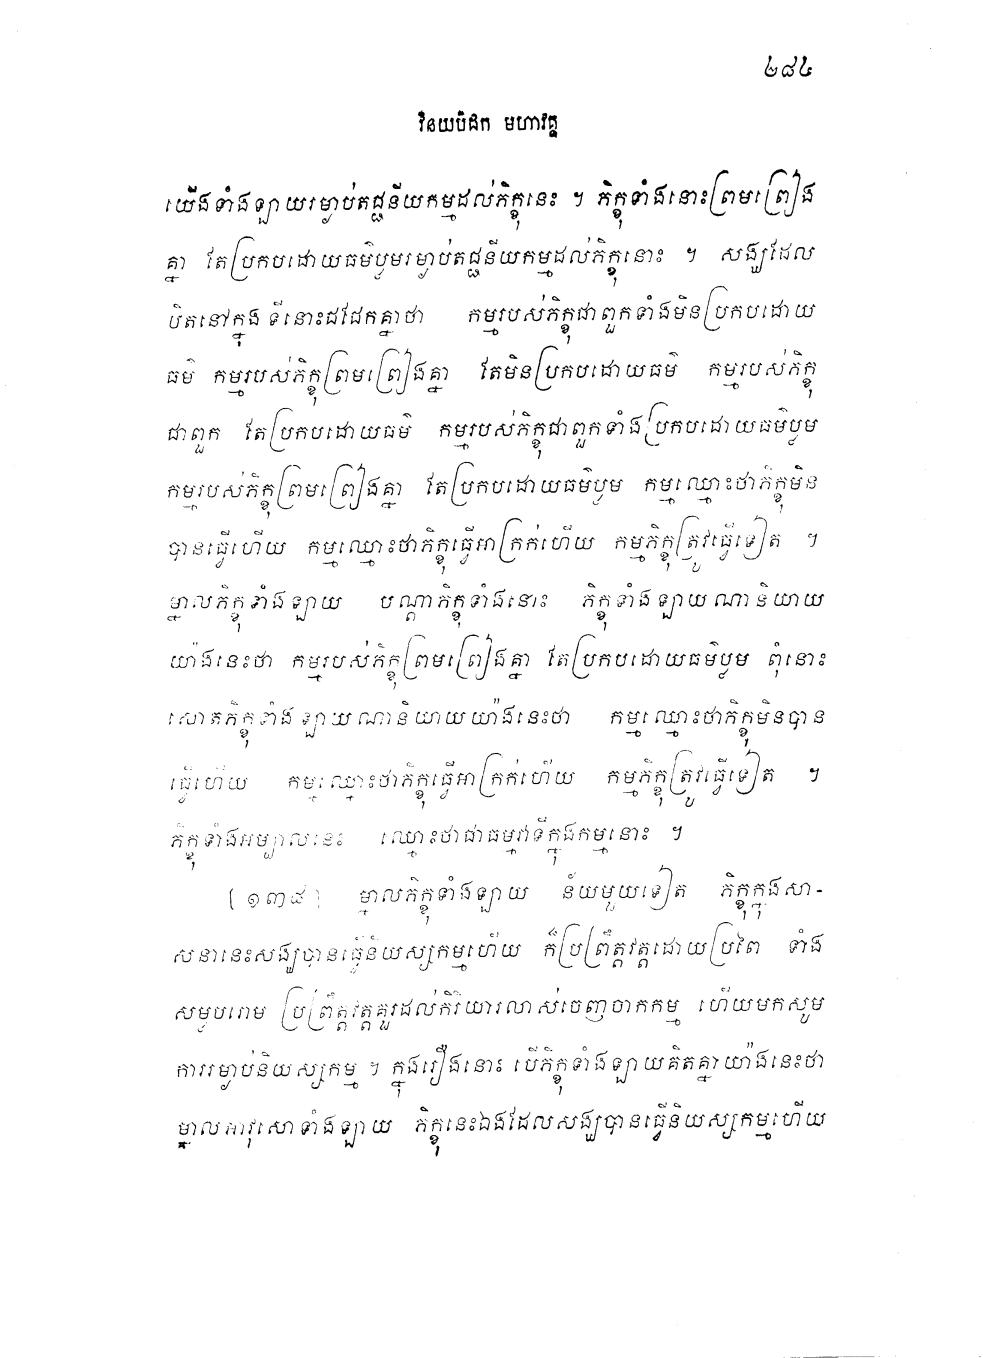 ២៨៤
វិនយបិដក មហាវគ្គ
យើងទាំងឡាយរម្ងាប់តជ្ជនីយកម្មដល់ភិក្ខុនេះ ។ ភិក្ខុទាំងនោះព្រមព្រៀង
គ្នា តែប្រកបដោយធម៌ប្លមរម្ងាប់តជ្ជនីយកម្មដល់ភិក្ខុនោះ ។ សង្ឃដែល
ឋិតនៅក្នុងទីនោះដដែកគ្នាថា កម្មរបស់ភិក្ខុជាពួកទាំងមិនប្រកបដោយ
ធម៌ កម្មរបស់ភិក្ខុព្រមព្រៀងគ្នា តែមិនប្រកបដោយធម៌ កម្មរបស់ភិក្ខុ
ជាពួក តែប្រកបដោយធម៌ កម្មរបស់ភិក្ខុជាពួកទាំងប្រកបដោយធម៌ប្លម
កម្មរបស់ភិក្ខុព្រមព្រៀងគ្នា តែប្រកបដោយធម៌ប្លម កម្មឈ្មោះថាភិក្ខុមិន
បានធ្វើហើយ កម្មឈ្មោះថាភិក្ខុធ្វើអាក្រក់ហើយ កម្មភិក្ខុត្រូវធ្វើទៀត ។
ម្នាលភិក្ខុទាំងឡាយ បណ្តាភិក្ខុទាំងនោះ ភិក្ខុទាំងឡាយណានិយាយ
យ៉ាងនេះថា កម្មរបស់ភិក្ខុព្រមព្រៀងគ្នា តែប្រកបដោយធម៌ប្លម ពុំនោះ
សោតភិក្ខុទាំងឡាយណានិយាយយ៉ាងនេះថា កម្មឈ្មោះថាភិក្ខុមិនបាន
ធ្វើហើយ កម្មឈ្មោះថាភិក្ខុធ្វើអាក្រក់ហើយ កម្មភិក្ខុត្រូវធ្វើទៀត ។
ភិក្ខុទាំងអម្បាលនេះ ឈ្មោះថាជាធម្មវាទីក្នុងកម្មនោះ ។
[១៣៨] ម្នាលភិក្ខុទាំងឡាយ ន័យមួយទៀត ភិក្ខុក្នុងសា-
សនានេះសង្ឃបានធ្វើនិយស្សកម្មហើយ ក៏ប្រព្រឹត្តវត្តដោយប្រពៃ ទាំង
សម្ងបរោម ប្រព្រឹត្តវត្តគួរដល់កិរិយារលាស់ចេញចាកកម្ម ហើយមកសូម
ការរម្ងាប់និយស្សកម្ម ។ ក្នុងរឿងនោះ បើភិក្ខុទាំងឡាយគិតគ្នាយ៉ាងនេះថា
ម្នាលអាវុសោទាំងឡាយ ភិក្ខុនេះឯងដែលសង្ឃបានធ្វើនិយស្សកម្មហើយ